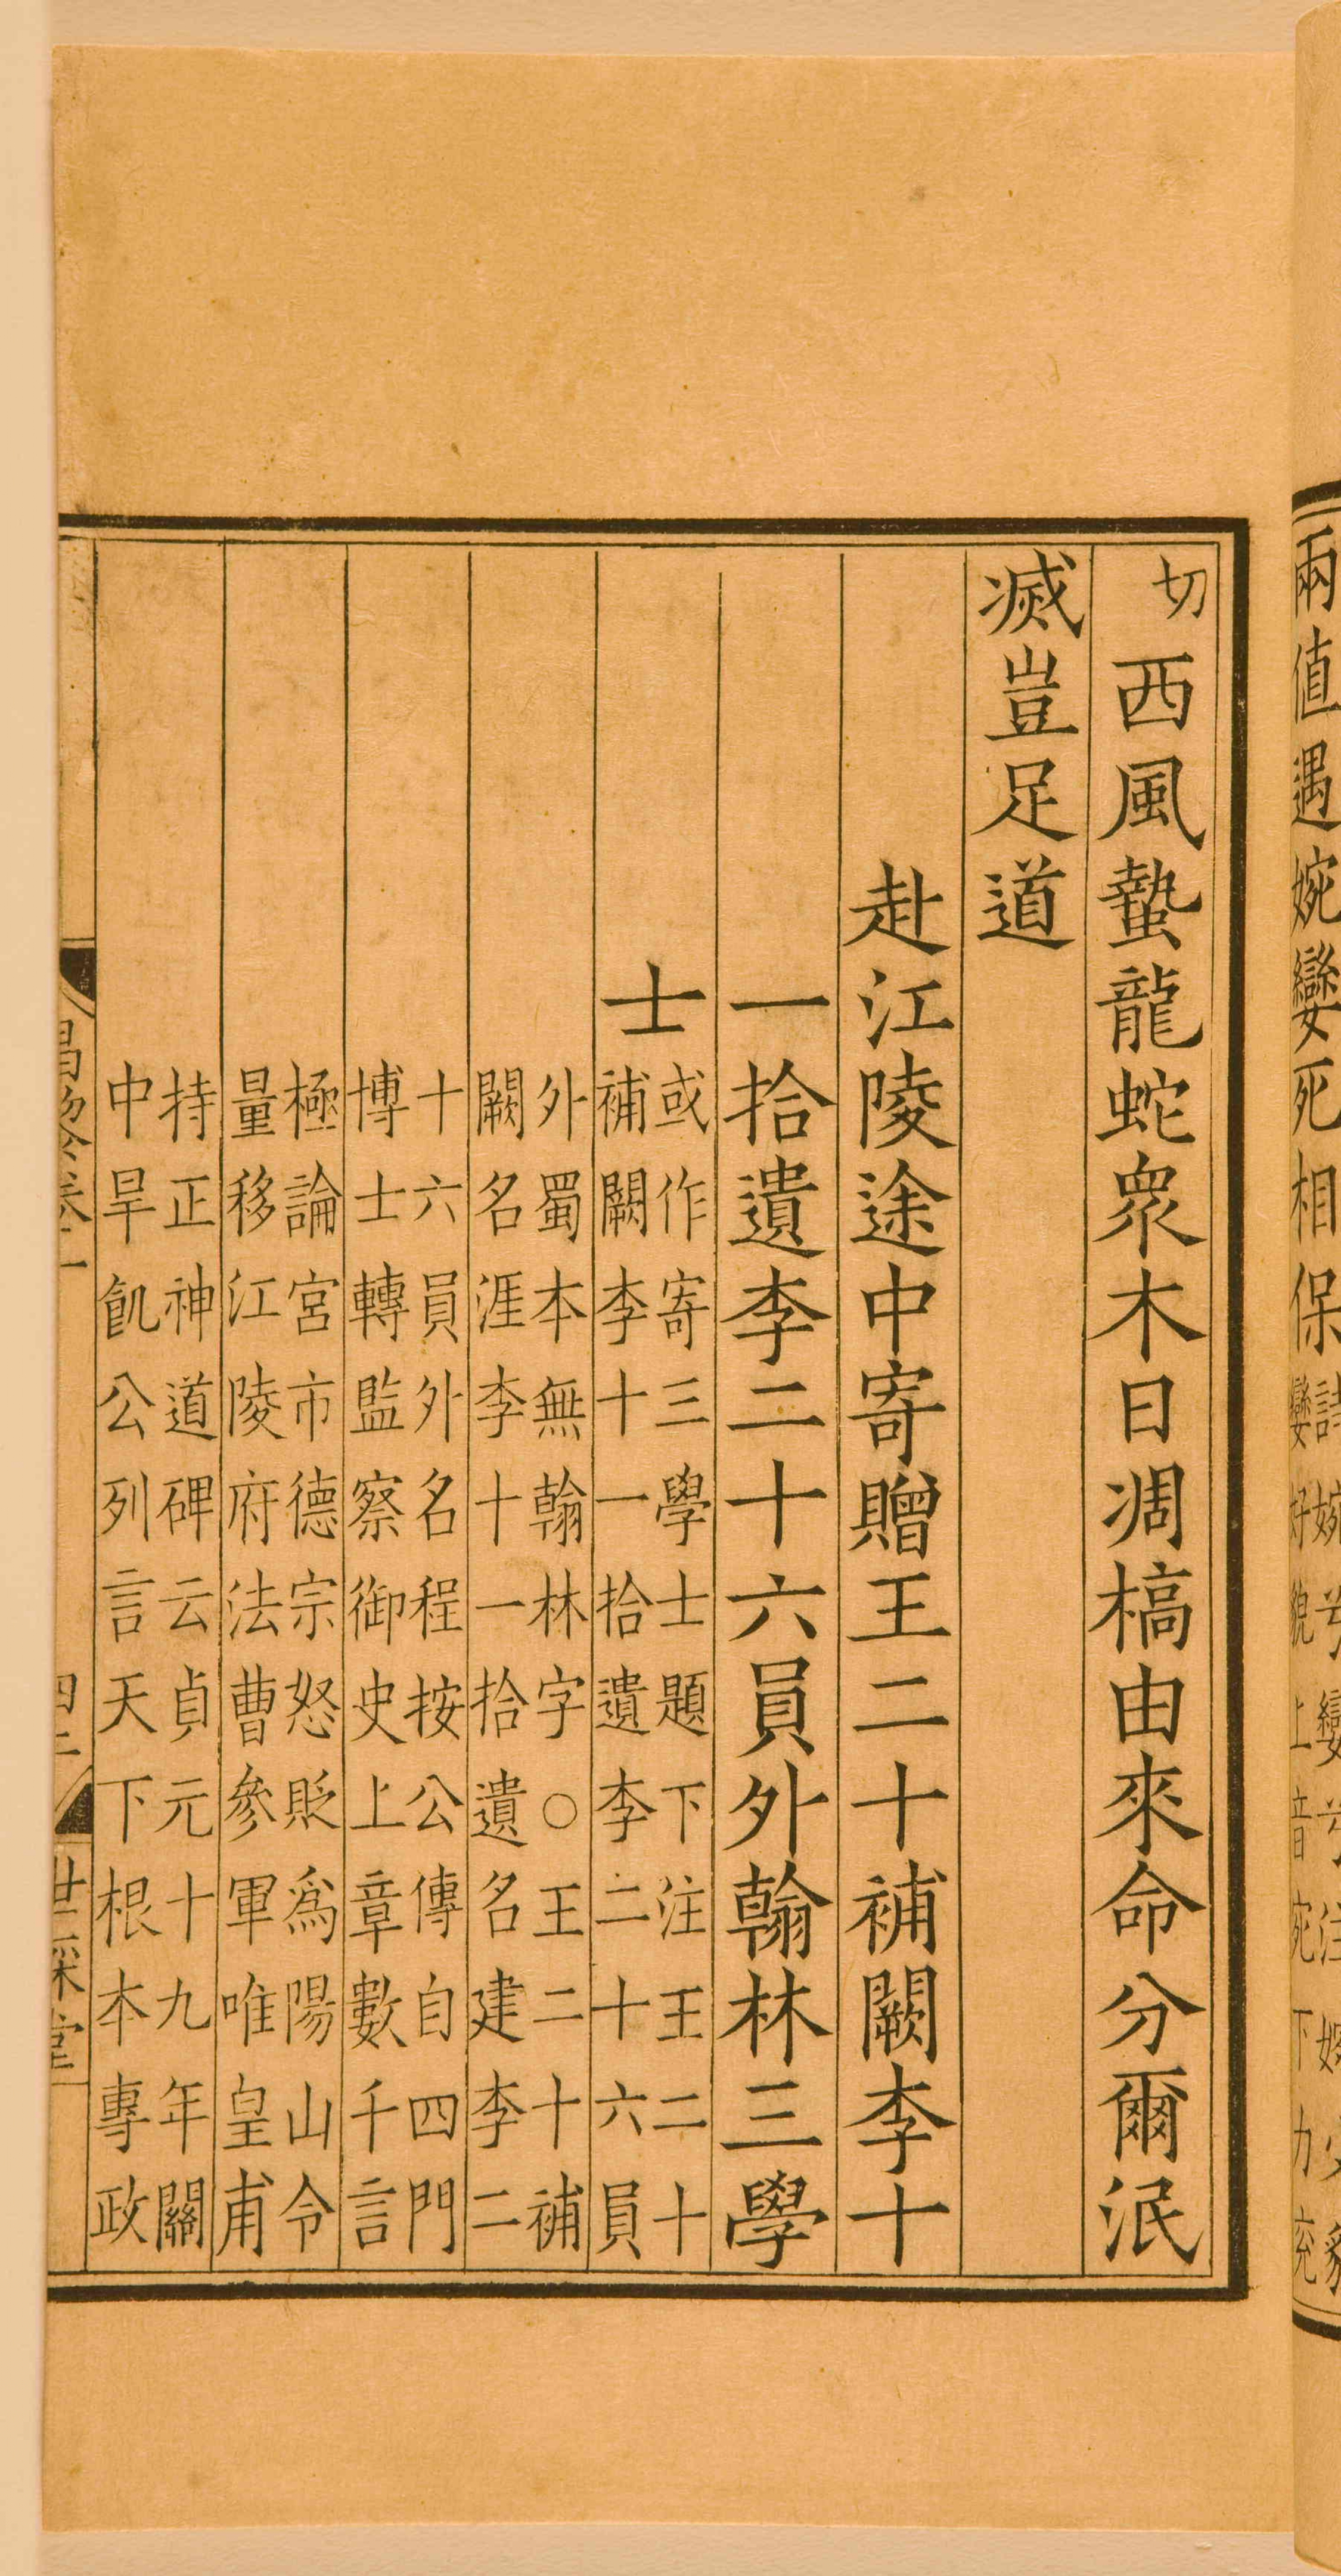 兩值遇婉孌死相保
切西風蟄龍蛇眾木日凋槁由來命分爾泯
滅豈足道
赴江陵途中寄贈王二十補闕李十
一拾遺李二十六員外翰林三學
士
或作寄三學士題下注王二十
補闕李十一拾遺李二十六員
外蜀本無翰林字○王二十補
闕名涯李十一拾遺名建李二
十六員外名程按公傳自四門
博士轉監察御史上章數千言
極論宮市德宗怒貶為陽山令
量移江陵府法曹參軍唯皇甫
持正神道碑云貞元十九年關
中旱飢公列言天下根本專政